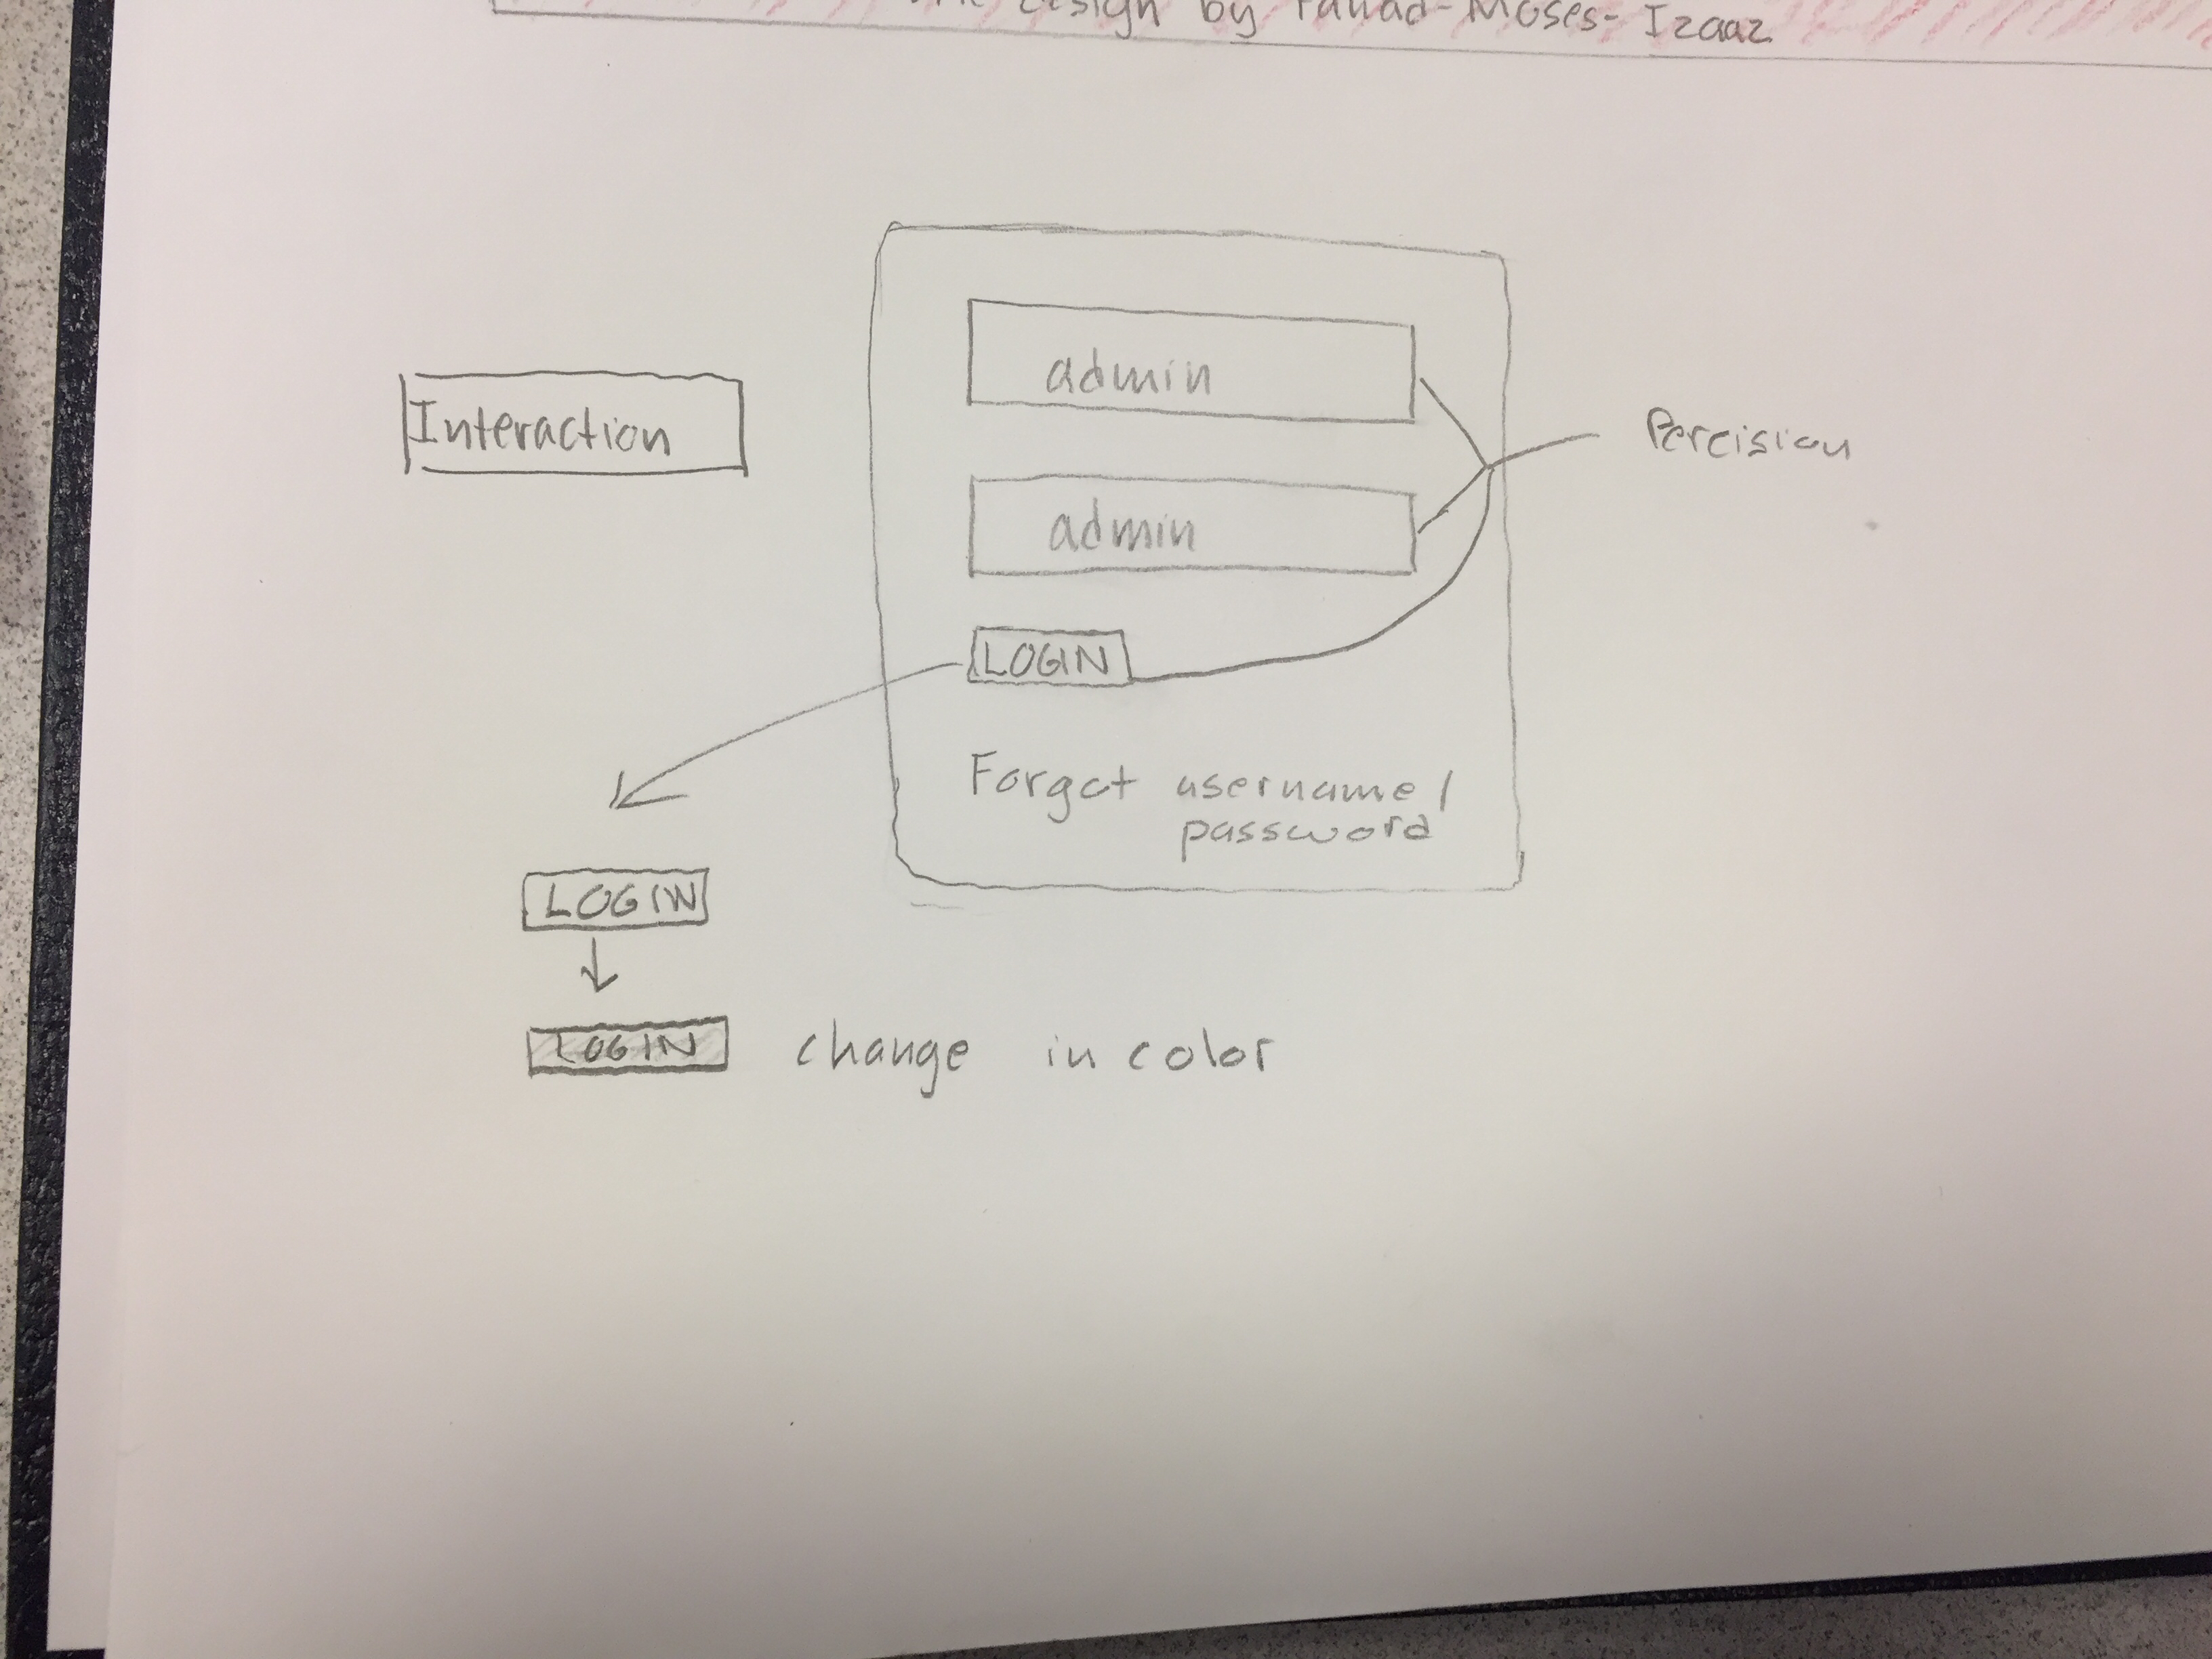 Design by Fahad-Moses-Izaaz
Interaction
admin
admin
Percision
LOGIN
Forget username/
password
LOGIN
LOGIN change in color